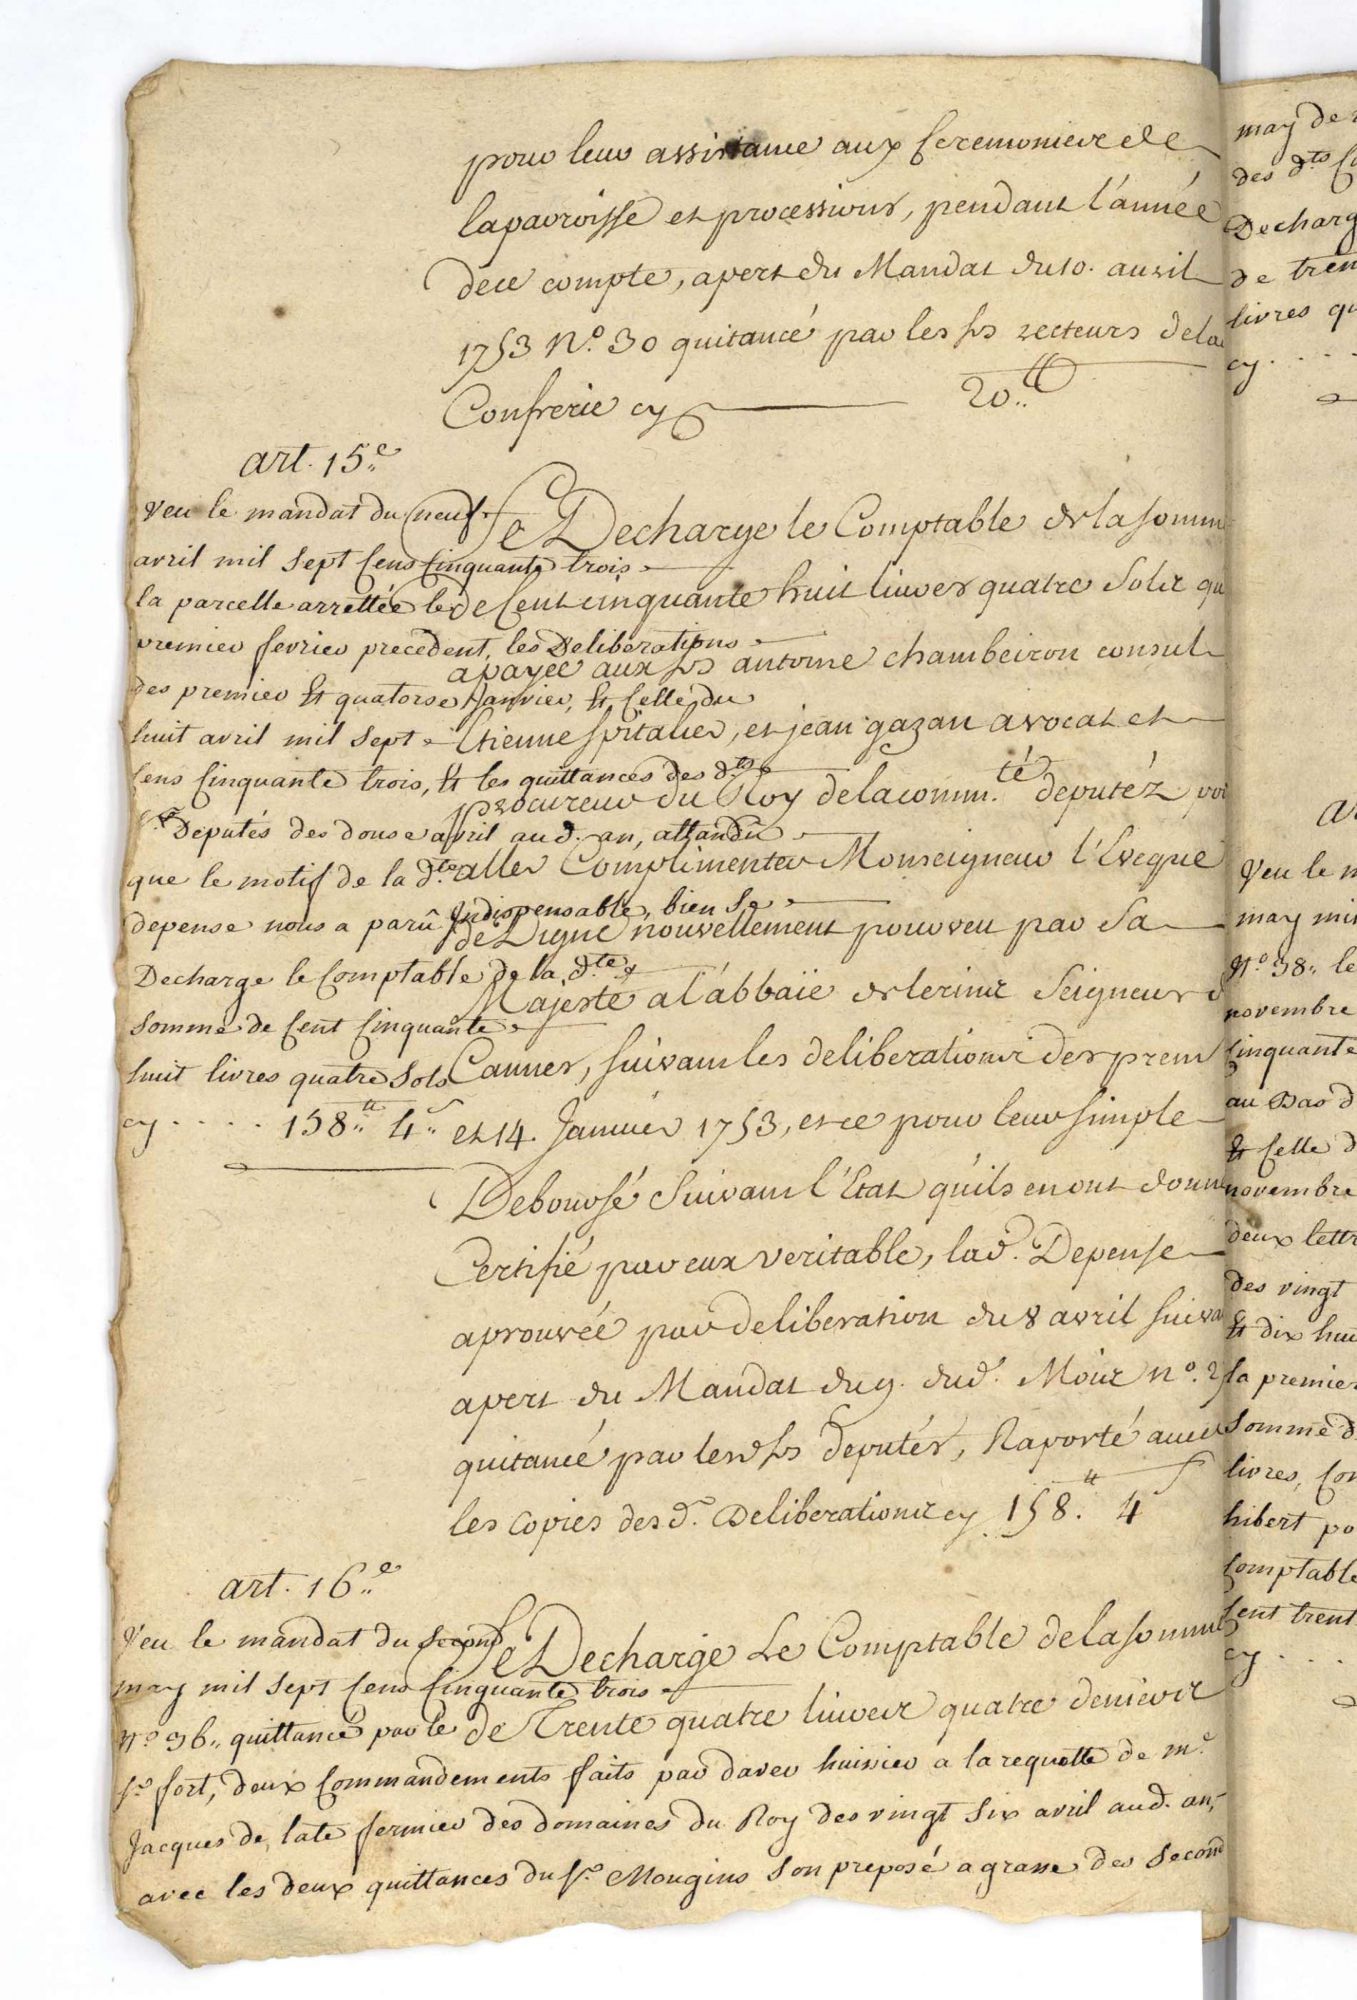 pour leur assistance aux Ceremonies de
la parroisse et processions, pendant l'année
de ce compte, apert du Mandat du 10. avril
1753 N.º 30 quitancé par les srs recteurs de la
Confrerie cy 20.₶
art. 15.e
Se Decharge le Comptable de la somm
de Cent cinquante huit livres quatre Sols qu
a payée aux srs antoine chambeiron consul
Etienne Spitalier, et jean gazan avocat et
procureur du Roy de la comm.té deputéz po
aller Complimenter Monseigneur l'Eveque
de Digne nouvellement pourveu par Sa
Majesté a l'abbaïe de lerins Seigneur d
Cannes, suivant les deliberations des prem
et 14. Janvier 1753, et ce pour leur simple
Deboursé Suivant l'Etat qu'ils en ont donn
Certifié par eux veritable, la d. Depense
aprouvée par deliberation du 8 avril suiva
apert du Mandat du 9. dud. Mois n.º 2
quitancé par lesd. srs deputés, Raporté avec
les copies des d. Deliberations cy 158.₶ 4 s
Veu le mandat du neuf
avril mil sept Cens Cinquante trois
la parcelle arrettée le
premier fevrier precedent, les Deliberations
des premier Et quatorse Janvier, Et Celle du
huit avril mil sept
Cens Cinquante trois, Et les quittances des d.ts
Srs Deputés des douse avril aud. an, attandû
que le motif de la d.te
depense nous a parû Indispensable, bien se
Decharge le Comptable de la d.te
somme de Cent Cinquante
huit livres quatre sols
cy . . . . . 158.₶ 4.s
art. 16.e
Se Decharge Le Comptable de la somm
de Trente quatre livres quatre deniers
Veu le mandat du second
may mil sept Cens Cinquante trois
N.º 36.. quittancé par le
Sr. fort, deux Commandements faits par daver huissier a la requette de m.e
Jacques de late fermier des domaines du Roy des vingt six avril aud. an,
avec les deux quittances du Sr. Mougins son preposé a grasse des second
may de
des d.ts
Decharg
de tren
livres qu
cy . . . .
Veu le m
may mil
N.º 38.. le
novembre
Cinquante
au Bas d
Et Celle d
novembre
deux lettr
des vingt
Et dix hui
la premier
somme d
livres, Con
hibert po
Comptable
Cent trent
cy . . . .